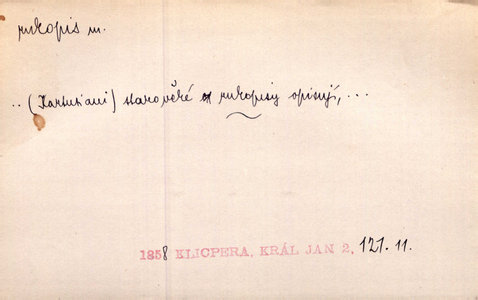 rukopis m.
.. (Kartusiani) starověké rukopisy opisují, ...
1858 KLICPERA, KRÁL JAN 2, 121. 11.